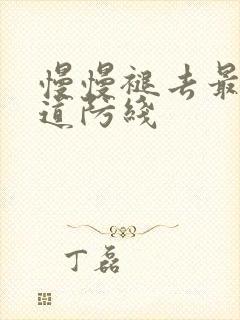 慢慢褪去最
道防綫
丁磊